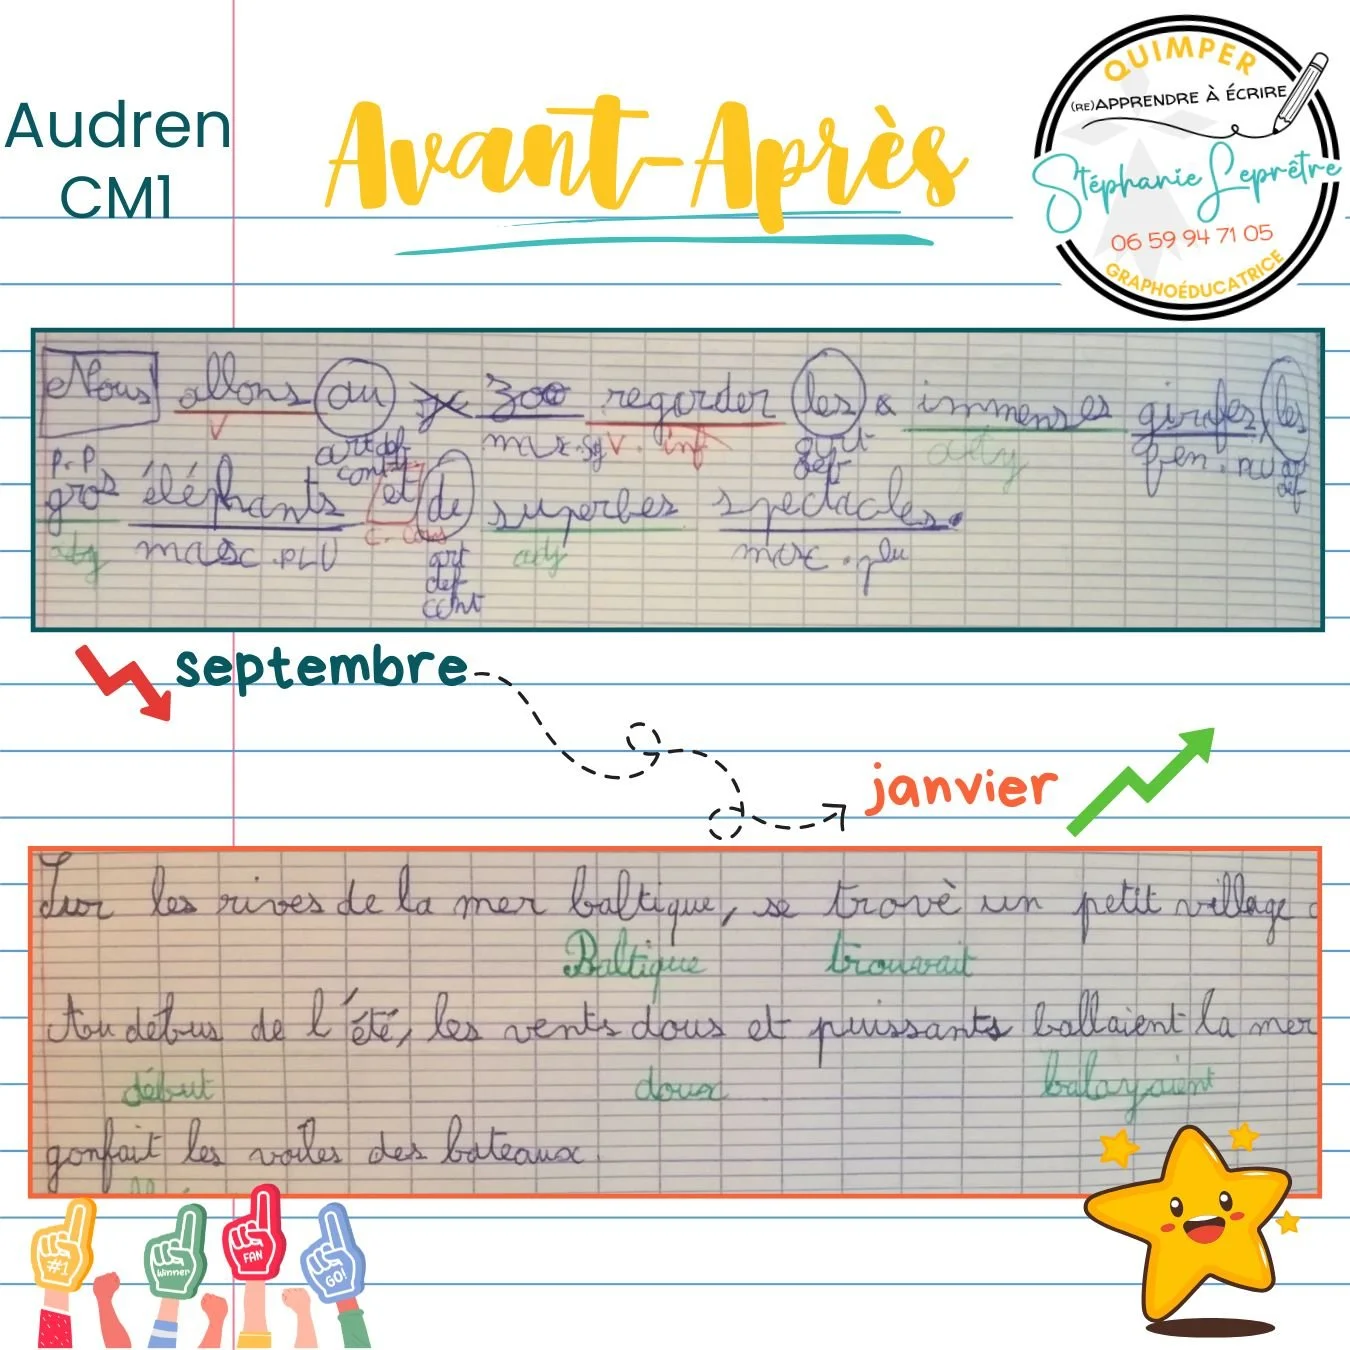 Audren
CM1
Avant-Après
QUIMPER
(RE)APPRENDRE À ÉCRIRE
Stéphanie Leprêtre
06 59 94 71 05
GRAPHOÉDUCATRICE
Nous allons au zoo regarder les immenses girafes, les
V art def cont masc.sg V. inf art def adj fem. PLU art def
P.P
gros éléphants et de superbes spectacles.
adj masc.PLU c. art def cont adj masc.plu
septembre
janvier
Sur les rives de la mer baltique, se trovè un petit village
Baltique trouvait
Au débus de l'été, les vents dous et puissants ballaient la mer
début doux balayaient
gonfait les voiles des bateaux.
#1
Winner
FAN
GO!